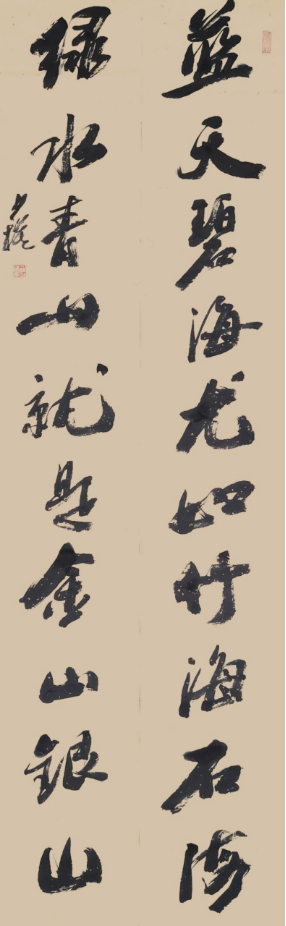 蓝天碧海尤如竹海石海
绿水青山就是金山银山